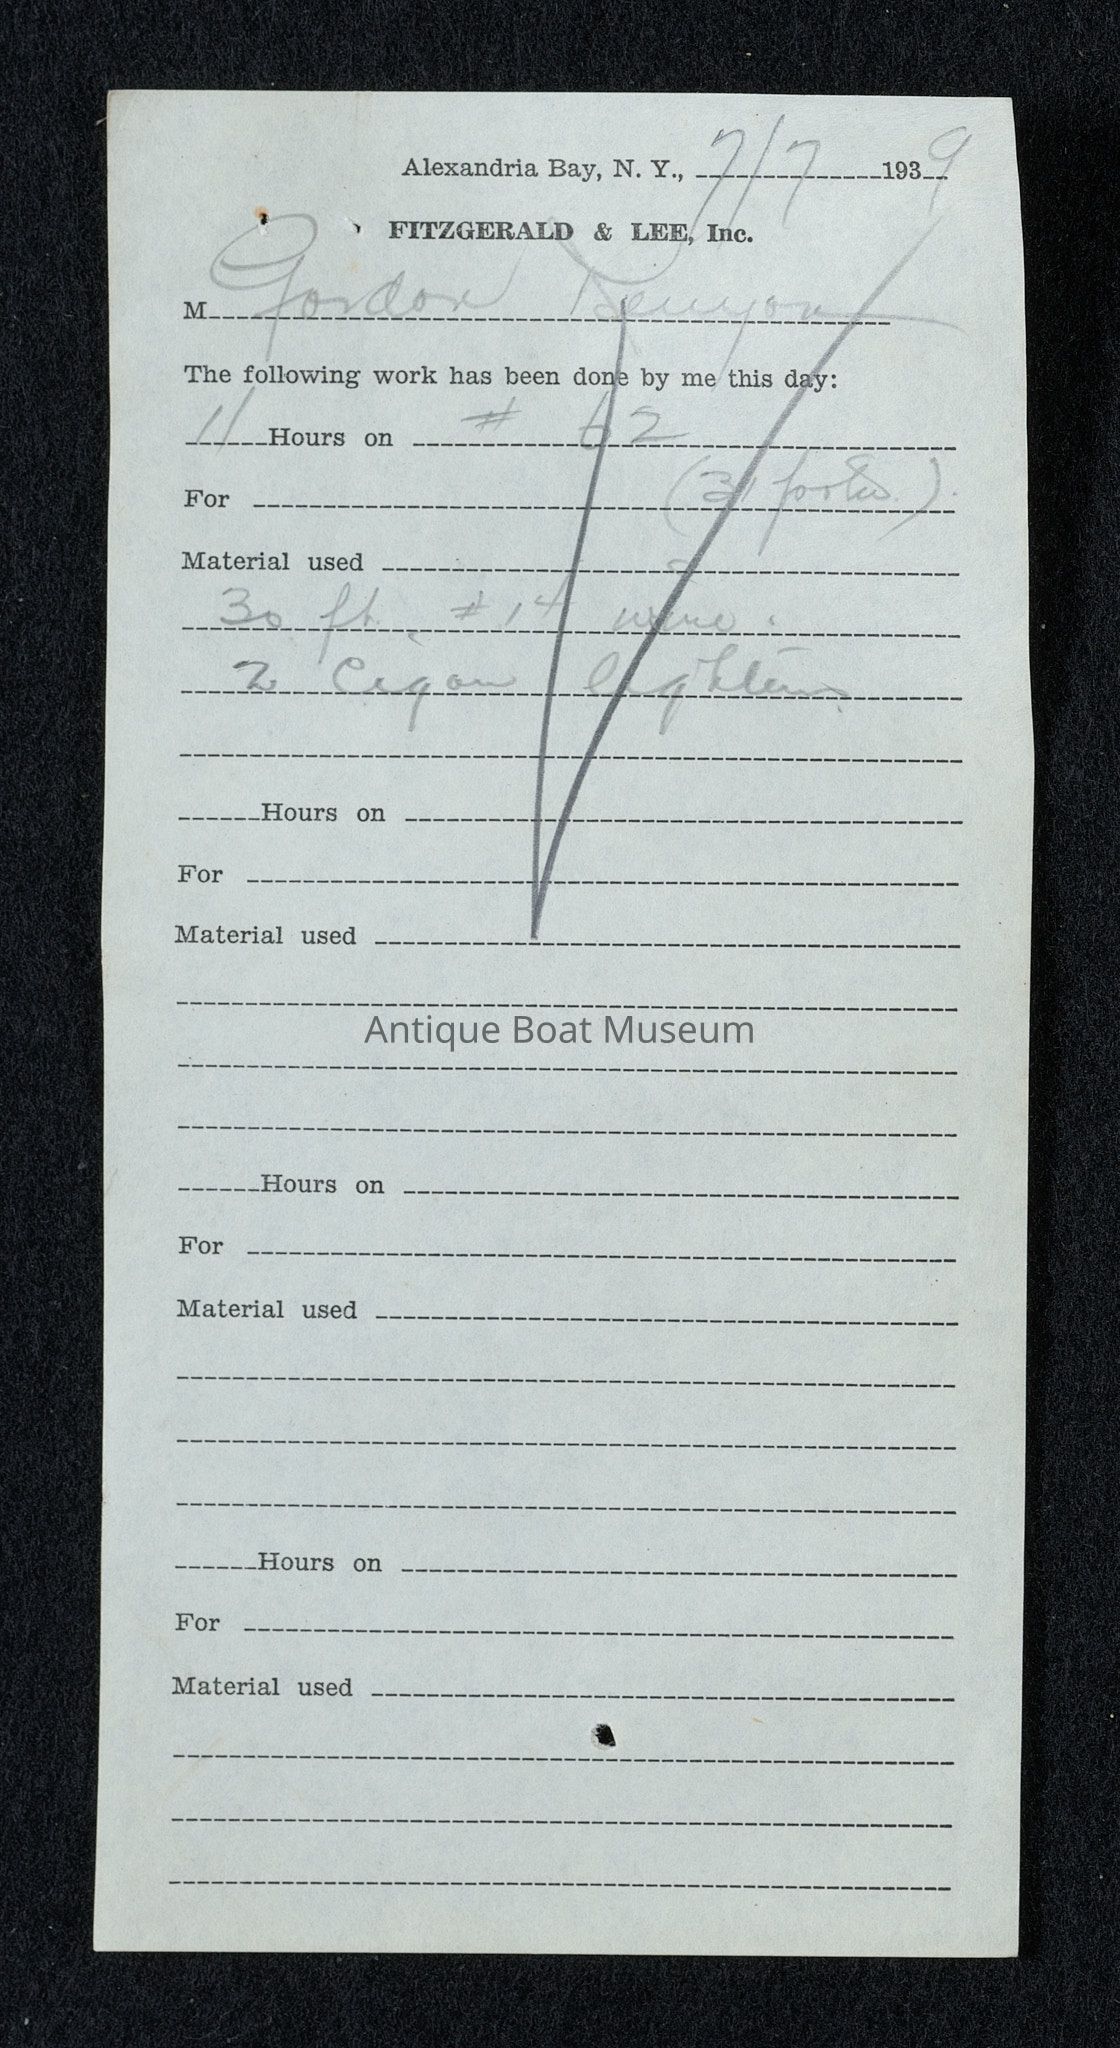 Alexandria Bay, N. Y., 7/7 1939
FITZGERALD & LEE, Inc.
M Gordon Kenyon
The following work has been done by me this day:
11 Hours on # 62
For (31 footer).
Material used
30 ft. #14 wire.
2 Cigar lighters
Hours on
For
Material used
Antique Boat Museum
Hours on
For
Material used
Hours on
For
Material used